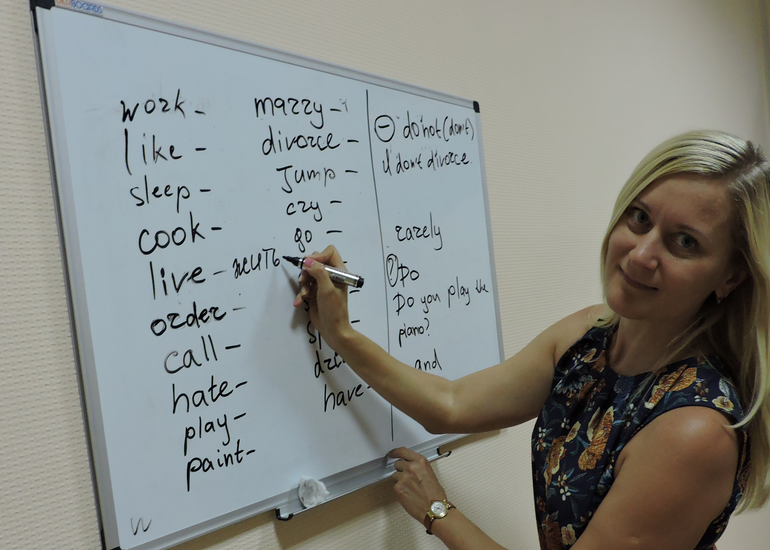 BOARDS
work -
like -
sleep -
cook -
live - жить
order -
call -
hate -
play -
paint -
marry -
divorce -
Jump -
cry -
go -
have -
⊖ do not (don't)
I don't divorce.
rarely
? Do
Do you play the
piano?
and